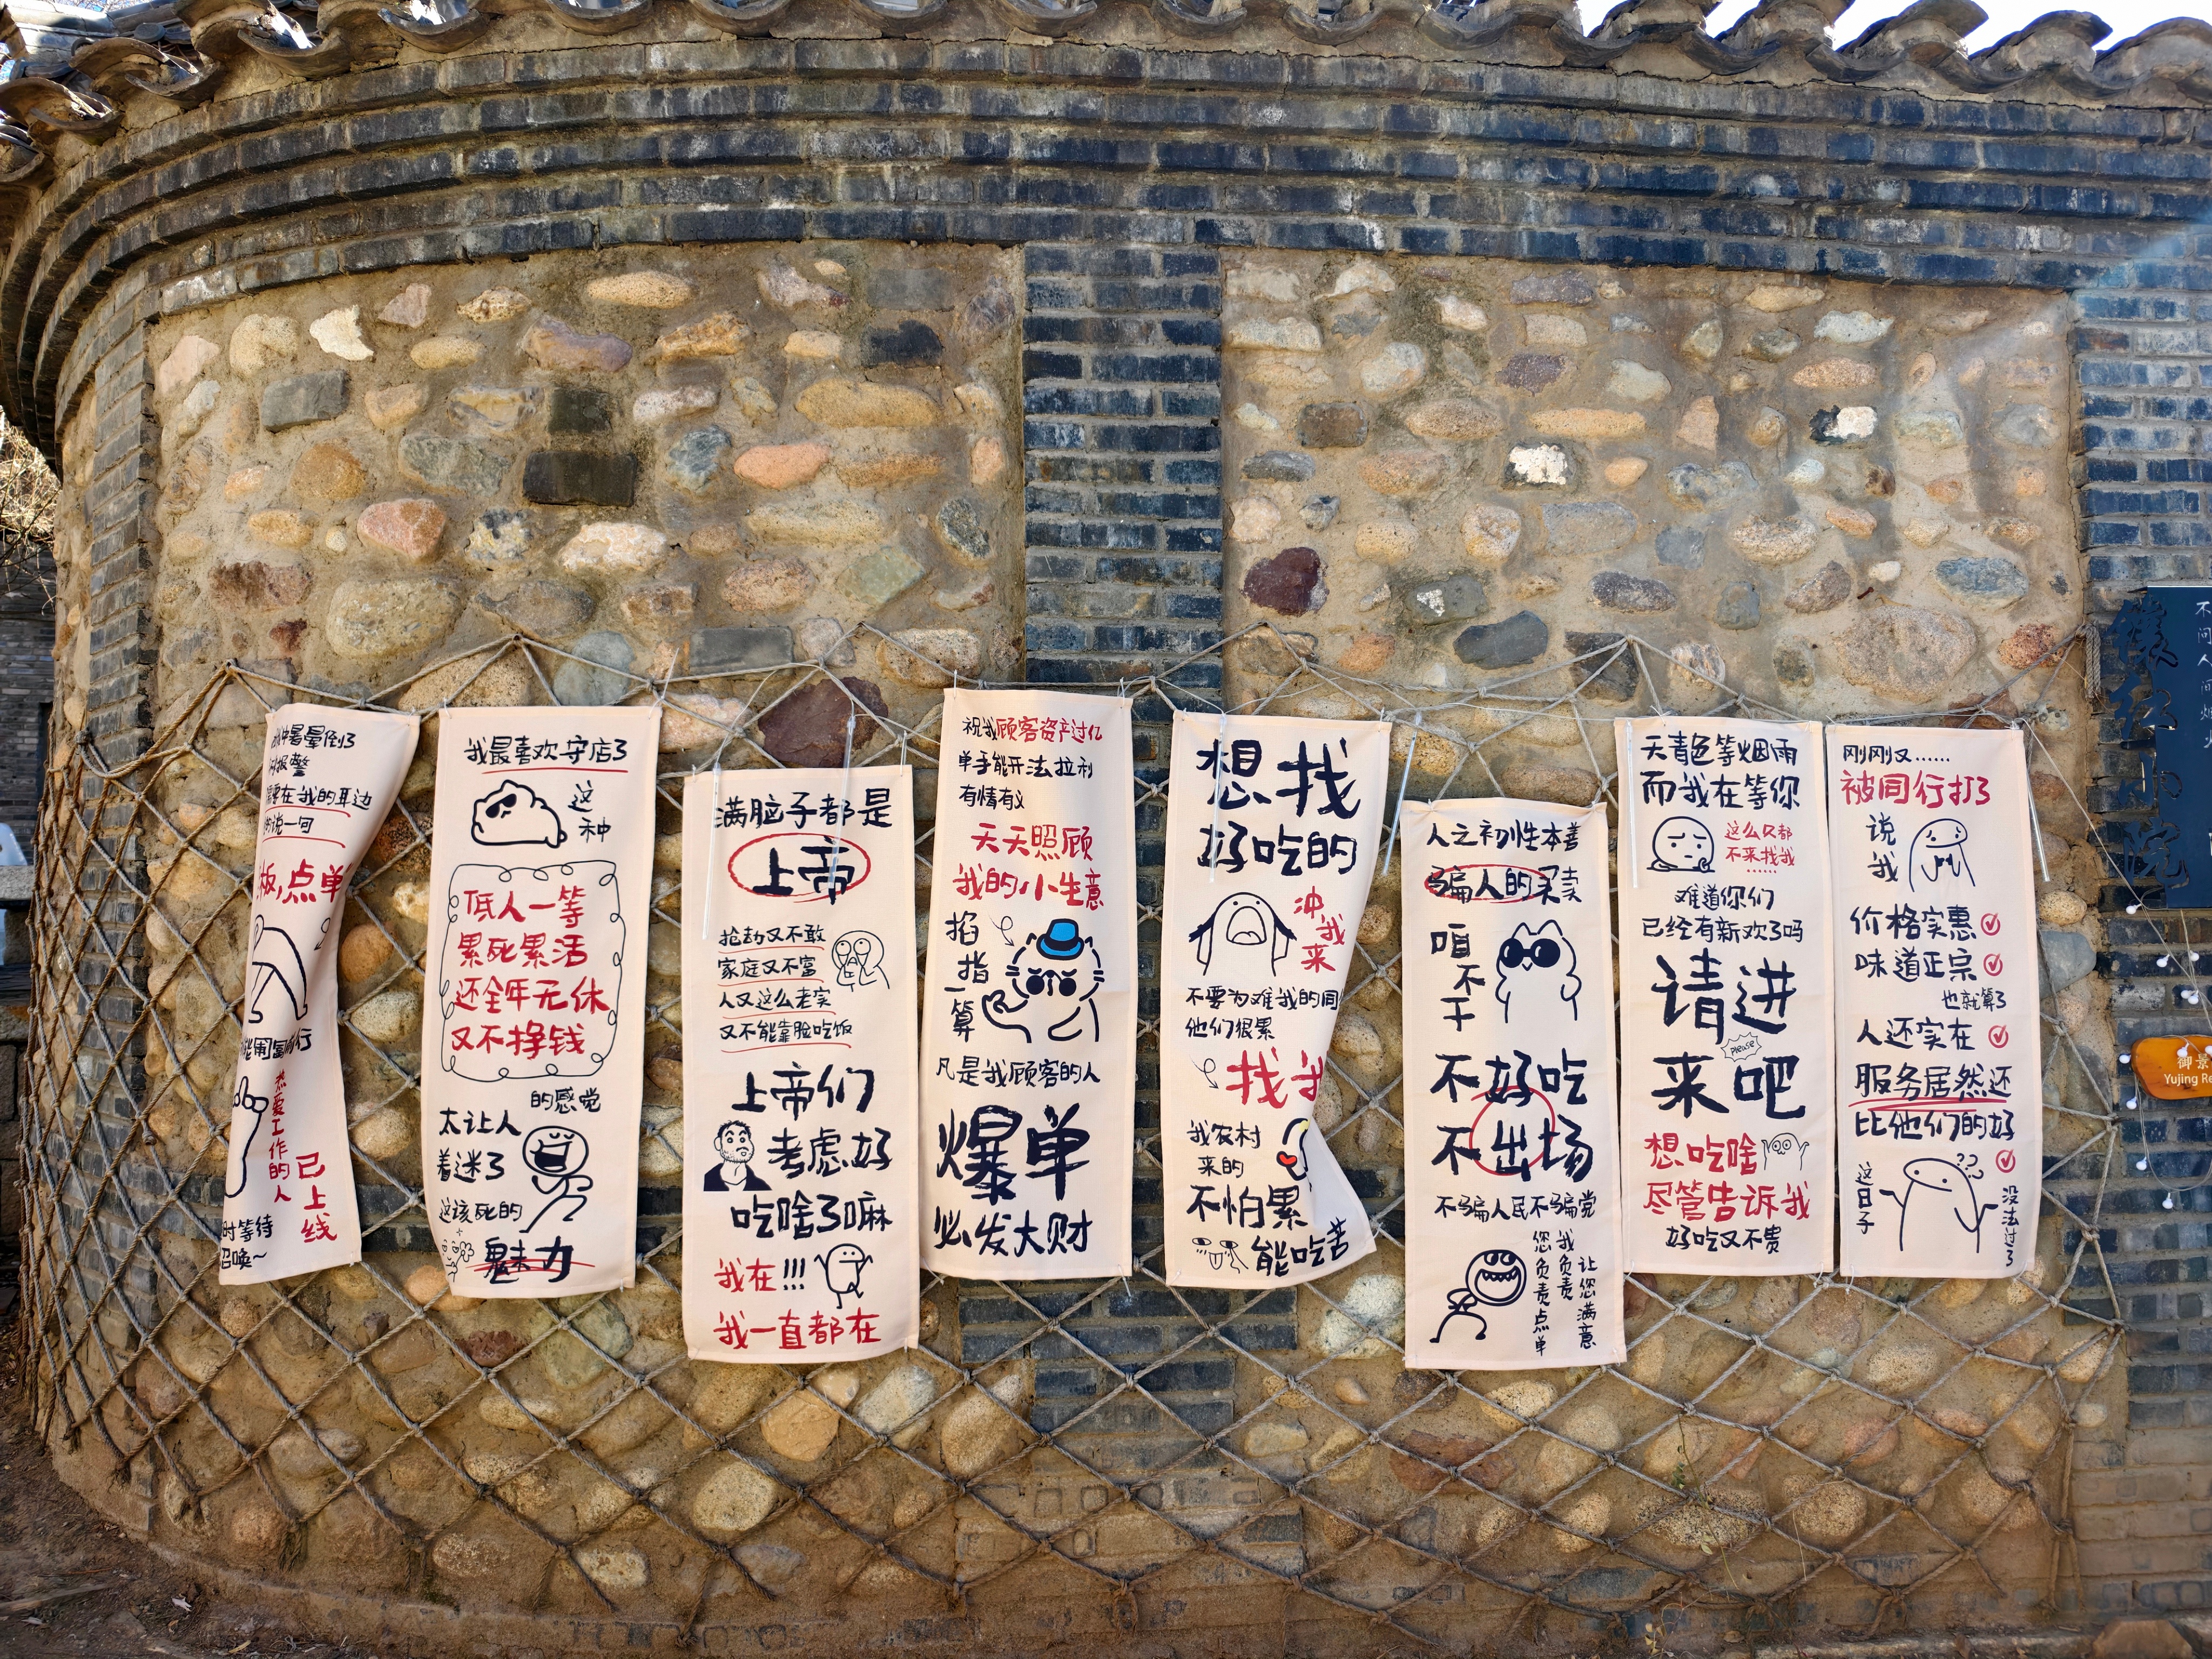 中暑晕倒了
报警
需要在我的耳边
的说一句
板,点单
热爱工作的人
已上线
时等待
召唤~
我最喜欢守店了
这种
低人一等
累死累活
还全年无休
又不挣钱
的感觉
太让人
着迷了
这该死的
魅力
满脑子都是
上帝
抢劫又不敢
家庭又不富
人又这么老实
又不能靠脸吃饭
上帝们
考虑好
吃啥了嘛
我在!!!
我一直都在
祝我顾客资产过亿
单手能开法拉利
有情有义
天天照顾
我的小生意
掐指一算
凡是我顾客的人
爆单
必发大财
想找
好吃的
冲我来
不要为难我的同
他们很累
找我
我农村
来的
不怕累
能吃苦
人之初性本善
骗人的买卖
咱不干
不好吃
不出场
不骗人民不骗党
您负责点单
我负责
让您满意
天青色等烟雨
而我在等你
这么久都
不来找我
……
难道你们
已经有新欢了吗
请进
please
来吧
想吃啥
尽管告诉我
好吃又不贵
刚刚又……
被同行打了
说我
价格实惠
味道正宗
也就算了
人还实在
服务居然还
比他们的好
这日子
没法过了
御景
Yujing Re